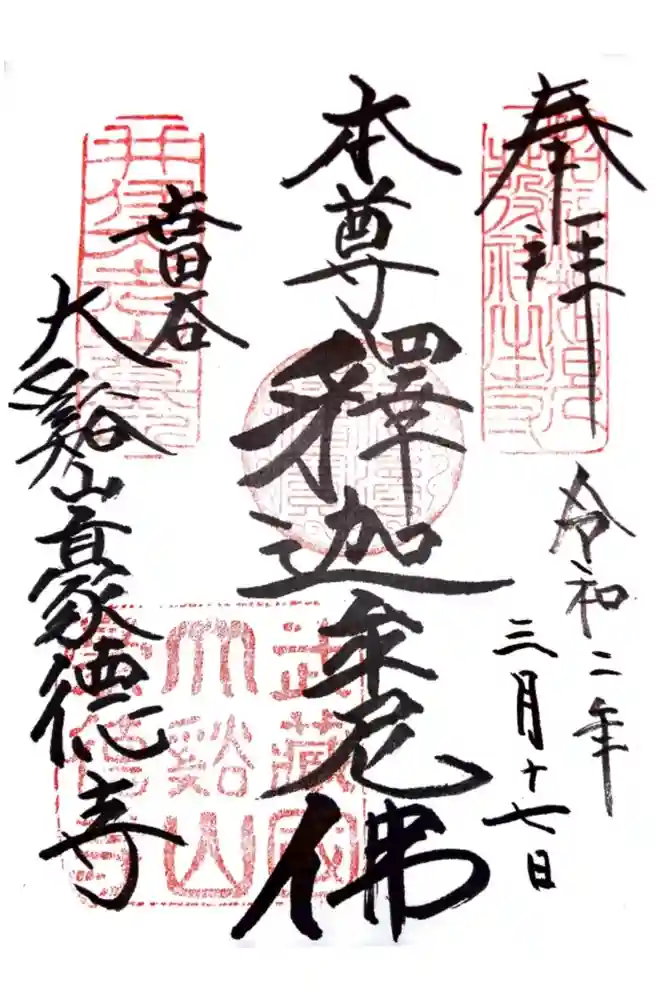 奉拝
令和二年
三月十七日
本尊
釋迦牟尼佛
世田谷
大谿山豪德寺
武藏國
大谿山
豪德寺